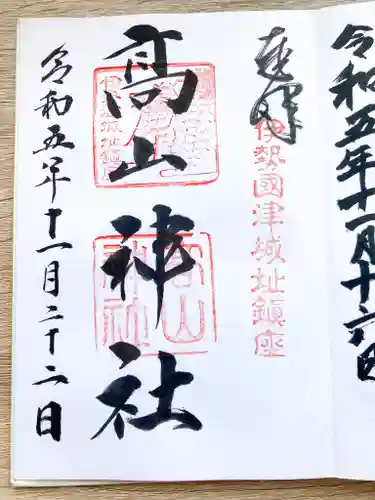 令和五年十一月十六日
奉拝
伊勢國津城址鎮座
高山神社
高山神社
令和五年十一月二十二日